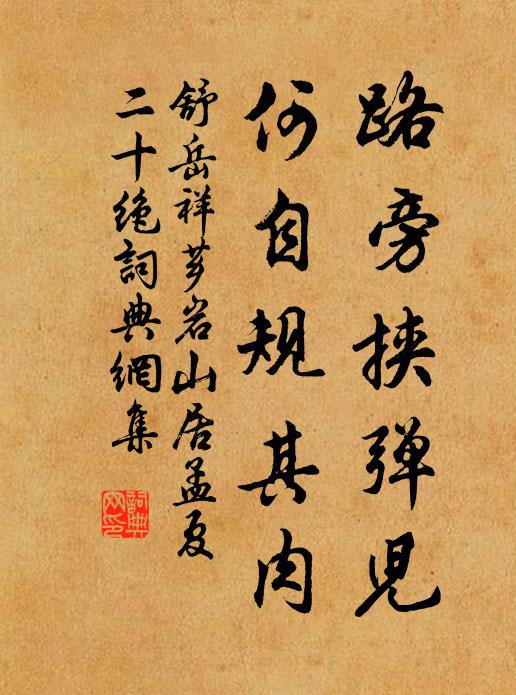 路旁挟弹児
何自规其肉
舒岳祥芗岩山居孟夏
二十绝詞典網集
詞典网印